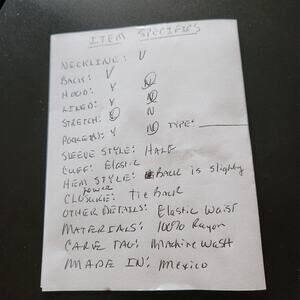 ITEM SPECIFICS
NECKLINE: V
BACK: V
HOOD: Y N
LINED: Y N
STRETCH: Y N
POCKETS: Y N TYPE:
SLEEVE STYLE: HALF
CUFF: Elastic
HEM STYLE: Back is slightly
lower
CLOSURE: Tie Back
OTHER DETAILS: Elastic Waist
MATERIALS: 100% Rayon
CARE TAG: Machine Wash
MADE IN: Mexico